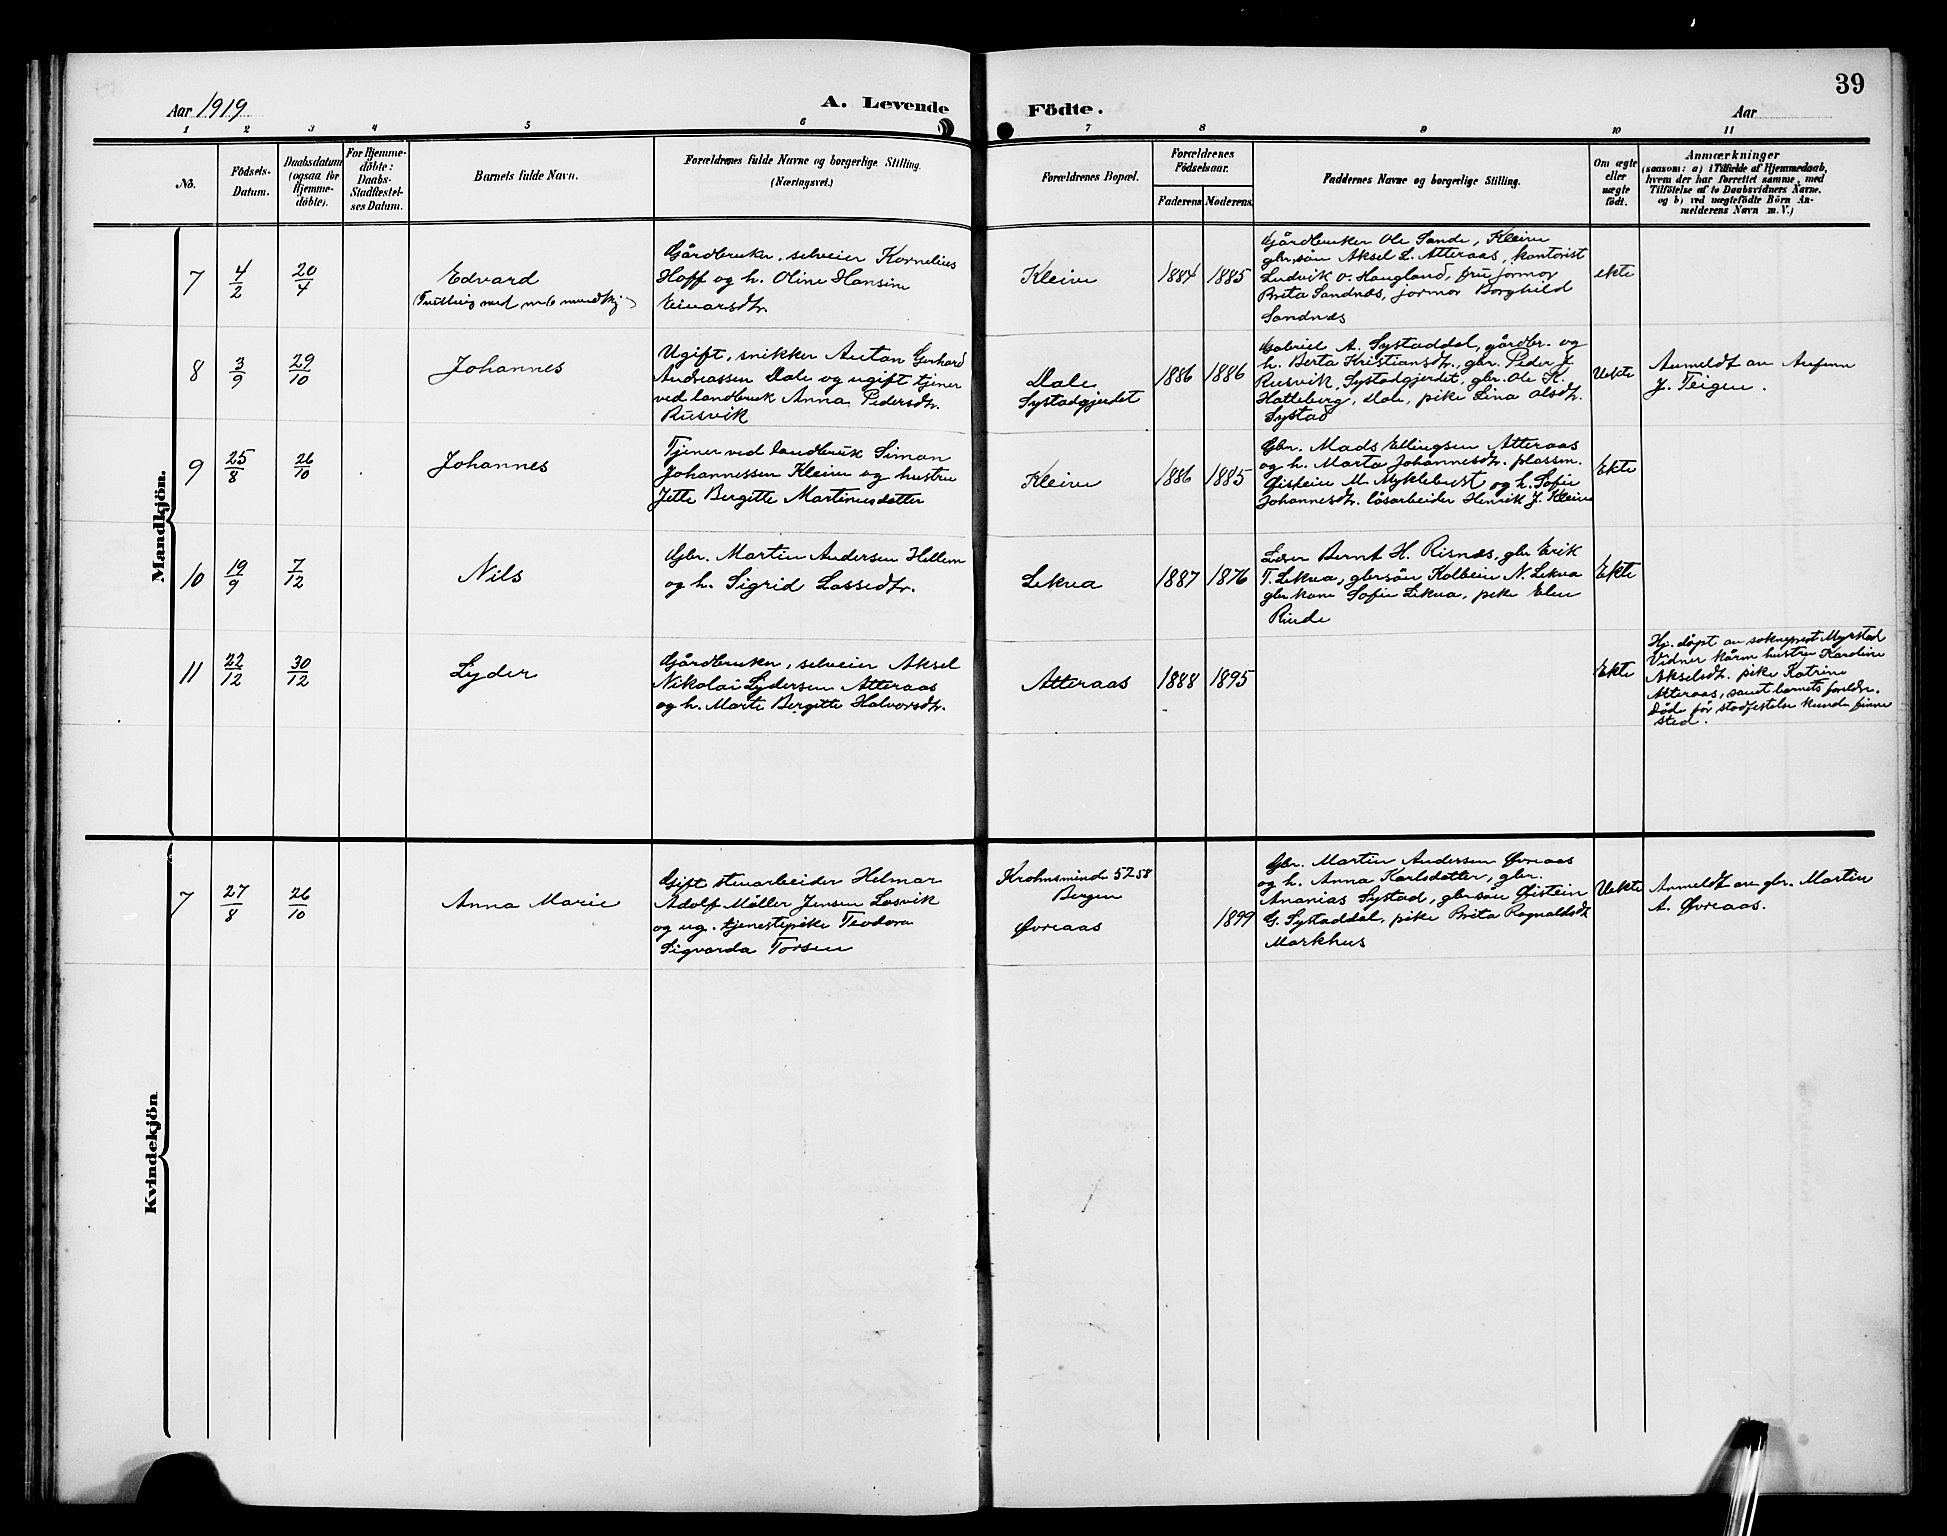 39
Aar 1919
A. Levende
Födte.
Aar
1 2 3 4 5 6 7 8 9 10 11
No.
Födsels-
Datum.
Daabsdatum
(ogsaa for
Hjemme-
døbte).
For Hjemme-
døbte:
Daabs-
Stadfæstel-
ses Datum.
Barnets fulde Navn.
Forældrenes fulde Navne og borgerlige Stilling.
(Næringsvei.)
Forældrenes Bopæl.
Forældrenes
Födselsaar.
Faderens
Moderens
Faddernes Navne og borgerlige Stilling.
Om ægte
eller
uægte
födt.
Anmærkninger
(saasom: a) i Tilfælde af Hjemmedaab,
hvem der har forrettet samme, med
Tilföielse af to Daabsvidners Navne.
og b) ved uægtefödte Börn An-
melderens Navn m. V.)
Mandkjön.
7
4/2
20/4
Edvard
Gårdbruker, selveier Kornelius
Hoff og h. Oline Hansine
Einarsdtr.
Kleive
1884
1885
Gårdbruker Ole Sande, Kleive
gbr.søn Aksel L. Atteraas, kontorist
Ludvik O. Haugland, fru jormor
Brita Sandnæs, jormor Borghild
Sandnæs
ekte
8
3/9
29/10
Johannes
Ugift, snikker Antan Gerhard
Andreassen Dale og ugift tjener
ved landbruk Anna Pedersdtr.
Rusvik
Dale
Systadgjerdet
1886
1886
Gabriel A. Systaddal, gårdbr. og
h. Berta Kristiansdtr., gbr. Peder J.
Rusvik, Systadgjerdet, gbr. Ole K.
Hatleberg, Dale, pike Lina Olsdtr.
Systad
Uekte
Anmeldt av Anfinn
J. Teigen.
9
25/8
26/10
Johannes
Tjener ved landbruk Simon
Johannessen Kleive og hustru
Jette Bergitte Martinusdatter
Kleive
1886
1885
Gbr. Mads Ellingsen Atteraas
og h. Marta Johannesdtr. plassm.
Øisteine M. Myklebust og h. Sofie
Johannesdtr. løsarbeider Henrik J. Kleive
Ekte
10
19/9
7/12
Nils
Gbr. Martin Andersen Hellem
og h. Sigrid Lassedtr.
Lekva
1887
1876
Lærer Bernt H. Risnæs, gbr Erik
T. Lekva, gbrsøn Kolbein N. Lekva
gbr kone Sofie Lekva, pike Elen
Rinde
Ekte
11
22/12
30/12
Lyder
Gårdbruker, selveier Aksel
Nikolai Lydersen Atteraas
og h. Marte Bergitte Halvorsdtr.
Atteraas
1888
1895
Ekte
Hj. døpt av sokneprest Myrstad
Vidner kårm hustru Karoline
Akselsdtr. pike Katrine
Atteraas, samt barnets foreldr.
Død før stadfestelse kunde finne
sted.
Kvindekjön
7
27/8
26/10
Anna Marie
Gift stenarbeider Helmar
Adolf Møller Jensen Løsvik
og ug. tjenestepike Teodora
Sigvarda Torsen
Krohnsminde 52 58
Bergen
Øvreaas
1899
Gbr. Martin Andersen Øvreaas
og h. Anna Karlsdatter, gbr.
Ananias Systad, gbrsøn Øistein
G. Systaddal, pike Brita Ragnaldsdtr.
Markhus
Uekte
Anmeldt av gbr. Martin
A. Øvreaas.